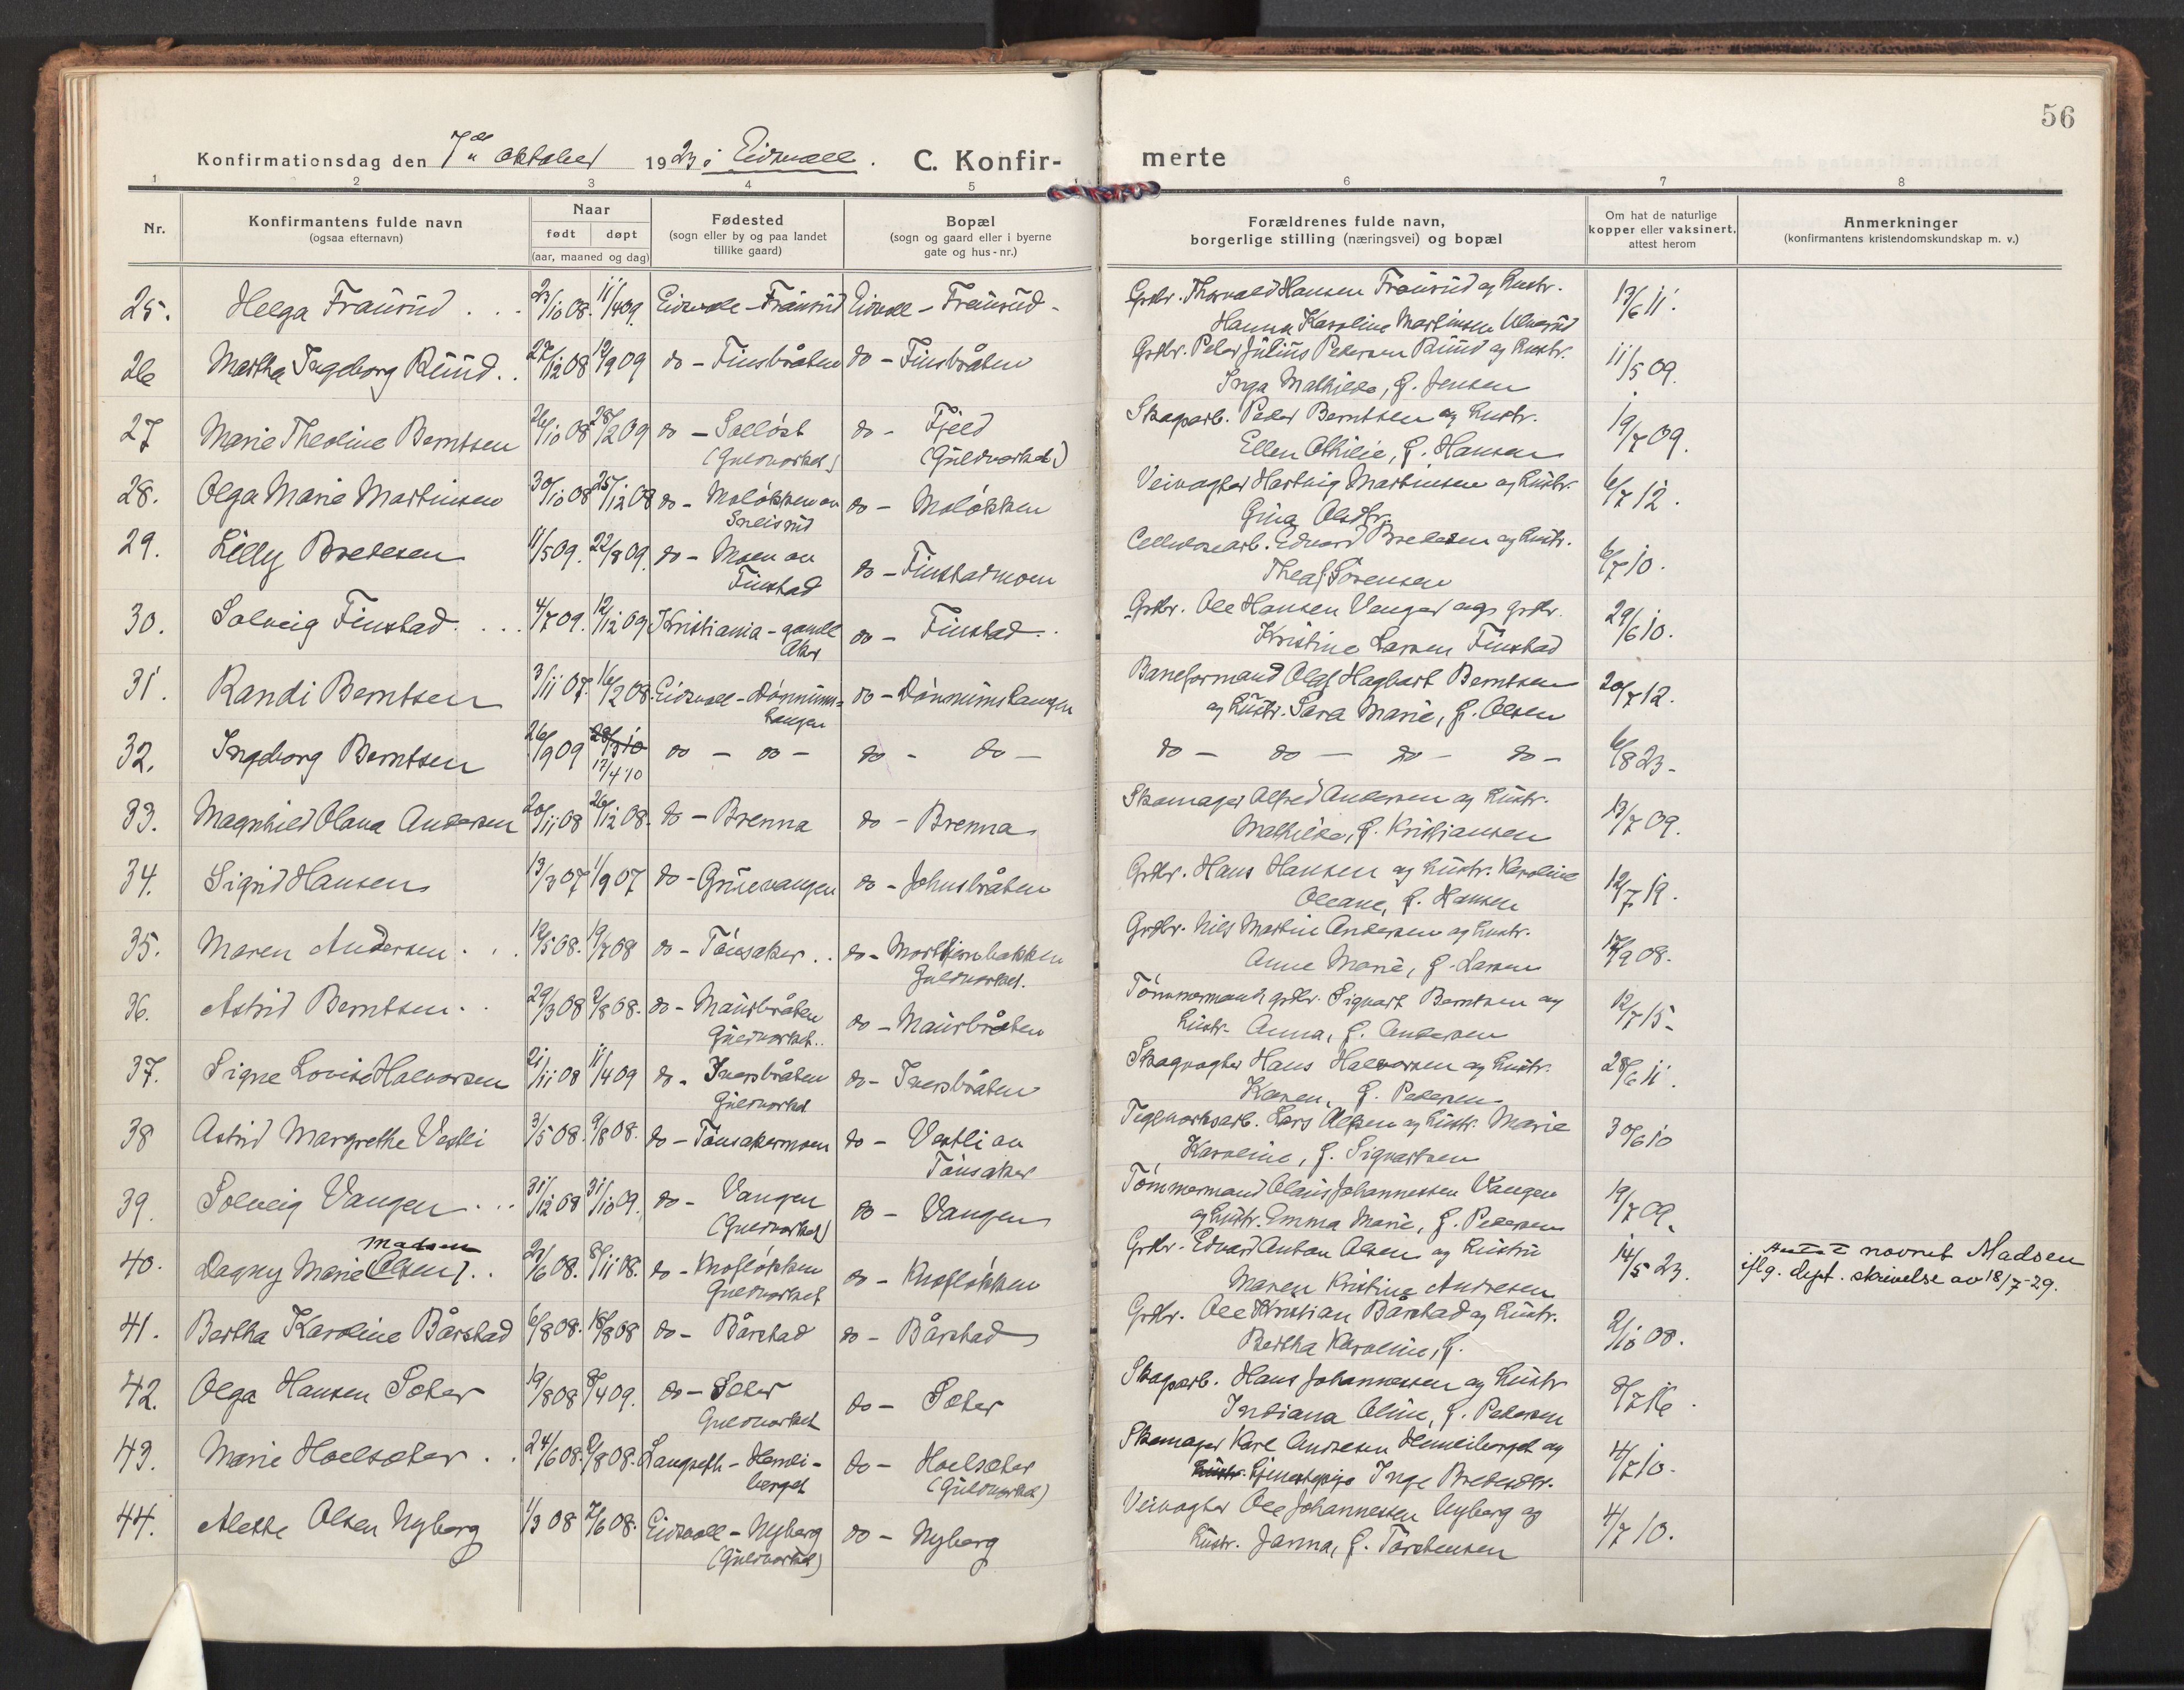 56
Konfirmationsdag den 7de oktober 1923 i Eidsvoll. C. Konfirmerte
1 2 3 4 5 6 7 8
Nr.
Konfirmantens fulde navn
(ogsaa efternavn)
Naar
født døpt
(aar, maaned og dag)
Fødested
(sogn eller by og paa landet
tillike gaard)
Bopæl
(sogn og gaard eller i byerne
gate og hus-nr.)
Forældrenes fulde navn,
borgerlige stilling (næringsvei) og bopæl
Om hat de naturlige
kopper eller vaksinert,
attest herom
Anmerkninger
(konfirmantens kristendomskundskap m. v.)
25. Helga Frausud 23/10 08. 11/4 09. Eidsvoll - Frausud Eidsvoll - Frausud - Grdbr. Thorvald Hansen Frausud og hustr. 13/6 11.
Hanna Karoline Martinsen
26 Martha Ingeborg Ruud. 27/12 08 12/9 09 do - Finsbråten do - Finsbråten Grdbr. Peder Julius Pedersen Ruud og hustr. 11/5 09.
Inga Mathilde, f. Jensen
27 Marie Theoline Berntsen 26/10 08 28/2 09 do - Solløst do - Fjeld Skogarb. Peder Berntsen og hustr. 19/7 09.
(Guldverket) (Guldverket) Ellen Othilie, f. Hansen
28. Olga Marie Martinsen 30/10 08 25/12 08 do - Moløkken av do - Moløkken Veivogter Hartvig Martinsen og hustr. 6/7 12.
Sneisrud Gina Olsdtr.
29. Lilly Bredesen 11/5 09. 22/8 09. do - Moen av do - Finstadmoen Cellulosearb. Edvard Bredesen og hustr. 6/7 10.
Finstad Thea f. Sørensen
30. Solveig Finstad. 4/7 09. 12/12 09 Kristiania - gamle do - Finstad. Grdbr. Ole Hansen Vanger og grdbr. 29/6 10.
Aker Kristine Larsen Finstad
31. Randi Berntsen 3/11 07. 16/2 08. Eidsvoll - Dønnums- do - Dønnumshaugen Baneformand Olaf Hagbart Berntsen 20/7 12.
haugen og hustr. Sara Marie, f. Olsen
32. Ingeborg Berntsen 26/9 09 28/3 10 do - do - do - do - do - do - do - do - 6/8 23-
17/4 10
33. Magnhild Olava Andersen 20/11 08 26/12 08. do - Brenna do - Brenna Skomager Alfred Andersen og hustr. 13/7 09.
Mathilde, f. Kristiansen
34. Sigrid Hansen 13/3 07 1/9 07 do - Gruevangen do - Johnsbråten Grdbr. Hans Hansen og hustr. Karoline 12/7 19.
Oleane, f. Hansen
35. Maren Andersen. 12/5 08. 19/7 08 do - Tønsaker.. do - Morttjernbakken Grdbr. Nils Martin Andersen og hustr. 17/9 08.
Guldverket. Anne Marie, f. Larsen
36. Astrid Berntsen. 29/3 08 9/8 08. do - Maurbråten do - Maurbråten Tømmermand, grdbr. Sigvart Berntsen og 12/7 15-
Guldverket.. hustr. Anna, f. Andersen
37. Signe Lovise Halvorsen 21/11 08 11/4 09 do - Iversbråten do - Iversbråten Skogvogter Hans Halvorsen og hustr. 28/6 11.
Guldverket Karen, f. Pedersen
38 Astrid Margrethe Vestli 3/5 08. 9/8 08. do - Tønsakermoen do - Vestli av Teglverksarb. Lars Olsen og hustr. Marie 30/6 10
Tønsaker Karoline, f. Sigvartsen
39. Solveig Vangen. 31/12 08 31/10 09. do - Vangen do - Vangen Tømmermand Olaus Johannessen Vangen 19/7 09.
(Guldverket) og hustr. Emma Marie, f. Pedersen
Madsen
40. Dagny Marie (Olsen). 23/6 08. 8/11 08. do - Knofløkken do - Knofløkken Grdbr. Edvard Anton Olsen og hustru 14/5 23. navnet Madsen
Guldverket Maren Kristine Andresen iflg. dept. skrivelse av 18/7-29.
41. Bertha Karoline Bårstad 6/8 08. 16/8 08 do - Bårstad do - Bårstad Grdbr. Ole Kristian Bårstad og hustr. 2/10 08.
Bertha Karoline, f.
42. Olga Hansen Sæter 19/8 08 8/4 09. do - Sæter do - Sæter Skogarb. Hans Johannessen og hustr. 8/7 16.
Guldverket Indiana Oline, f. Pedersen
43. Marie Hoelsæter. 24/6 08. 9/8 08. Langseth - Hemli- do - Hoelsæter Skomager Karl Andresen Hemliberget og 4/7 10.
berget (Guldverket) hustr. tjenestepige Inge Bredesdtr.
44. Alette Olsen Nyberg 1/3 08 7/6 08. Eidsvoll - Nyberg do - Nyberg Veivogter Ole Johannessen Nyberg og 4/7 10.
(Guldverket) hustr. Janna, f. Torstensen